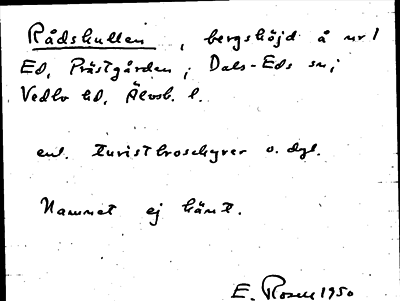 Rådshullen, bergshöjd å nr 1
Ed, Prästgården, Dals-Eds sn,
Vedbo hd, Älvsb. l.
enl. turistbroschyrer o. dyl.
Namnet ej känt.
E. Rosell 1950